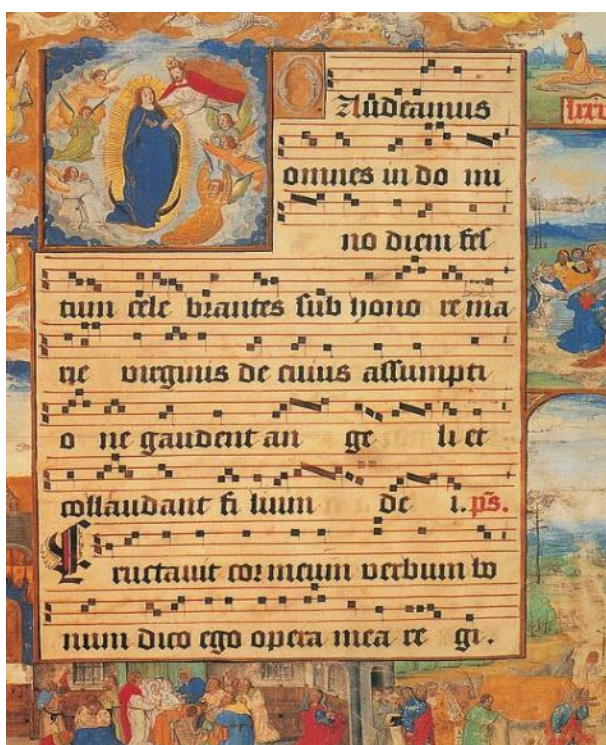 Gaudeamus
lxxi
omnes in do mi
no diem fes
tum cele brantes sub hono re ma
rie virginis de cuius assumpti
o ne gaudent an ge li et
collaudant fi lium de i. p̄s.
Eructauit cor meum verbum bo
num dico ego opera mea re gi.